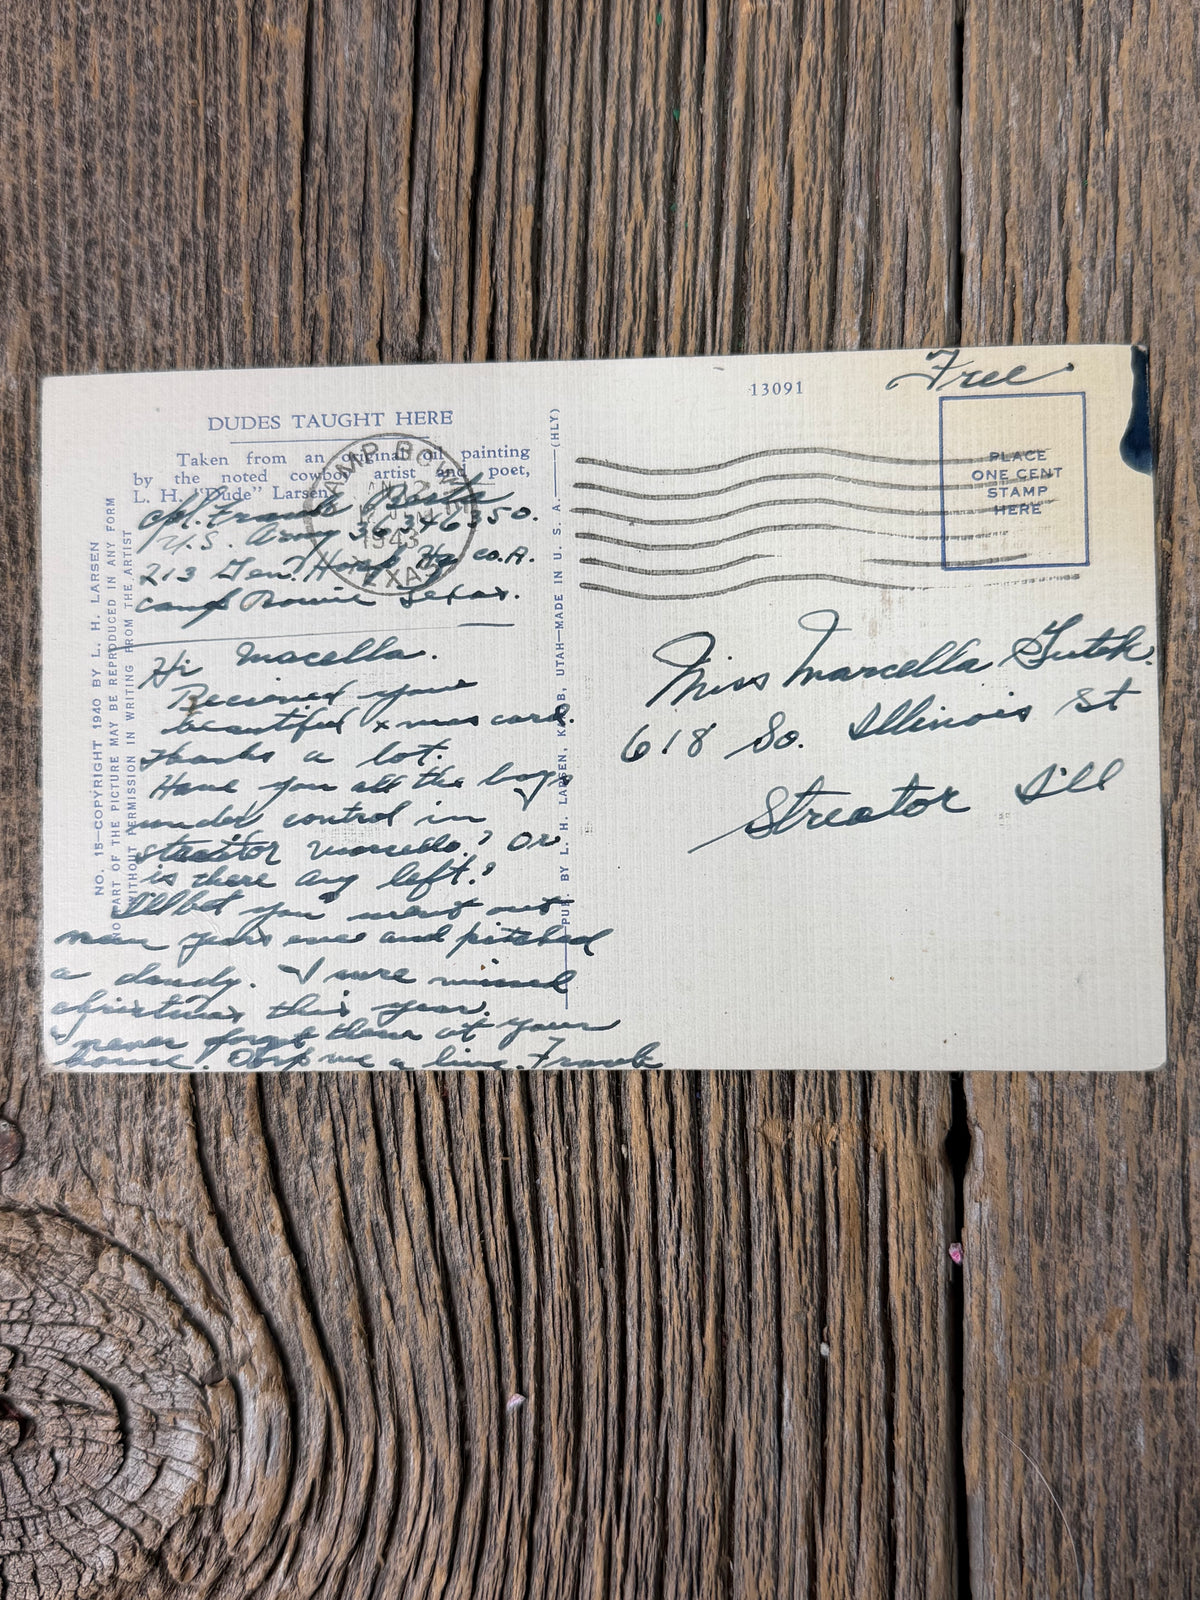 DUDES TAUGHT HERE
Taken from an original oil painting
by the noted cowboy artist and poet,
L. H. "Dude" Larsen
CAMP BOWIE
1943
TEXAS
Cpl. Frank
U.S. Army 36346350.
213 Gen. Hosp. Hq co.A.
camp Bowie Texas.
Hi Macella.
Recieved your
beautiful xmas card.
Thanks a lot.
Have you all the boys
under control in
streator Marcella? Or
is there any left?
I'll bet you went out
new years eve and pitched
a dandy. I sure missed
christmas this year.
I never forget them at your
house! Dorp me a line. Frank
NO. 15—COPYRIGHT 1940 BY L. H. LARSEN
NO PART OF THE PICTURE MAY BE REPRODUCED IN ANY FORM
WITHOUT PERMISSION IN WRITING FROM THE ARTIST
PUB. BY L. H. LARSEN, KANAB, UTAH—MADE IN U. S. A.——(HLY)
13091
Free
PLACE
ONE CENT
STAMP
HERE
Miss Marcella
618 So. Illinois St
Streator Ill